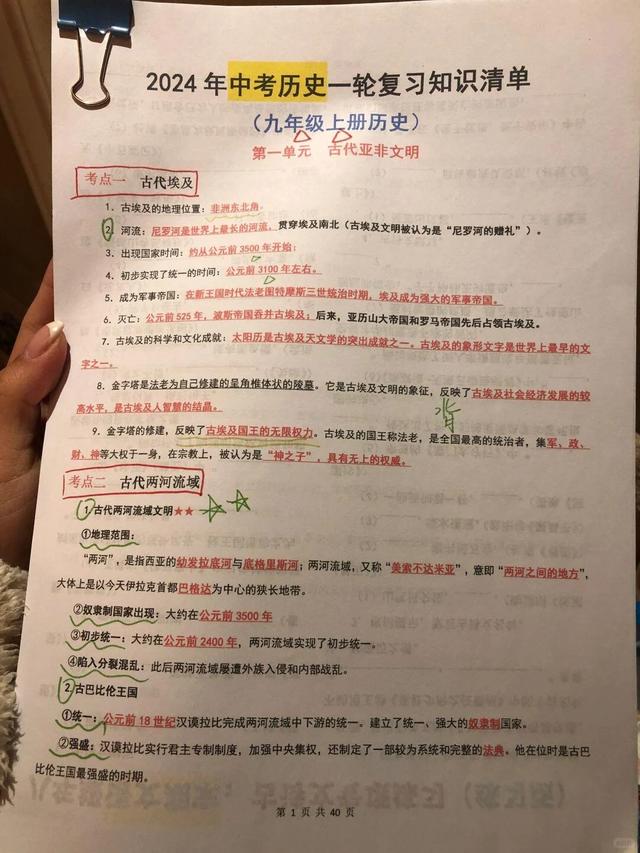 2024年中考历史一轮复习知识清单
（九年级上册历史）
第一单元 古代亚非文明
考点一 古代埃及
1. 古埃及的地理位置：非洲东北角。
2. 河流：尼罗河是世界上最长的河流，贯穿埃及南北（古埃及文明被认为是“尼罗河的赠礼”）。
3. 出现国家时间：约从公元前3500年开始；
4. 初步实现了统一的时间：公元前3100年左右。
5. 成为军事帝国：在新王国时代法老图特摩斯三世统治时期，埃及成为强大的军事帝国。
6. 灭亡：公元前525年，波斯帝国吞并古埃及；后来，亚历山大帝国和罗马帝国先后占领古埃及。
7. 古埃及的科学和文化成就：太阳历是古埃及天文学的突出成就之一。古埃及的象形文字是世界上最早的文
字之一。
8. 金字塔是法老为自己修建的呈角椎体状的陵墓。它是古埃及文明的象征，反映了古埃及社会经济发展的较
高水平，是古埃及人智慧的结晶。
背
9. 金字塔的修建，反映了古埃及国王的无限权力。古埃及的国王称法老，是全国最高的统治者，集军、政、
财、神等大权于一身，在宗教上，被认为是“神之子”，具有无上的权威。
考点二 古代两河流域
1 古代两河流域文明★★
①地理范围：
“两河”，是指西亚的幼发拉底河与底格里斯河；两河流域，又称“美索不达米亚”，意即“两河之间的地方”，
大体上是以今天伊拉克首都巴格达为中心的狭长地带。
②奴隶制国家出现：大约在公元前3500年
③初步统一：大约在公元前2400年，两河流域实现了初步统一。
④陷入分裂混乱：此后两河流域屡遭外族入侵和内部战乱。
2 古巴比伦王国
①统一：公元前18世纪汉谟拉比完成两河流域中下游的统一。建立了统一、强大的奴隶制国家。
②强盛：汉谟拉比实行君主专制制度，加强中央集权，还制定了一部较为系统和完整的法典。他在位时是古巴
比伦王国最强盛的时期。
第1页共40页